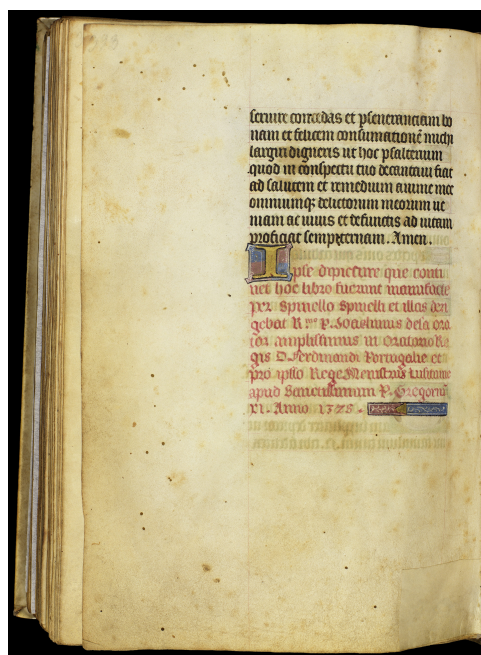 seruire concedas et pseueranciam bo
nam et felicem consumationē michi
largiri digneris ut hoc psalterium
quod in conspectu tuo decantaui fiat
ad salutem et remedium anime mee
omniumq; delictorum meorum ue
niam ac uiuis et defunctis ad uitam
proficiat sempiternam. Amen.
Ipse dipicture que conti
net hoc libro fuerunt manufacte
per Spinello Spinelli et illas diri
gebat R.mo P. Joachinus de la
tor amplissimus in Oratorio Re
gis D. Ferdinandi Portugalie et
pro ipso Rege Lusitanie
apud Sanctissimum P. Gregoriu
XI. Anno 1378.